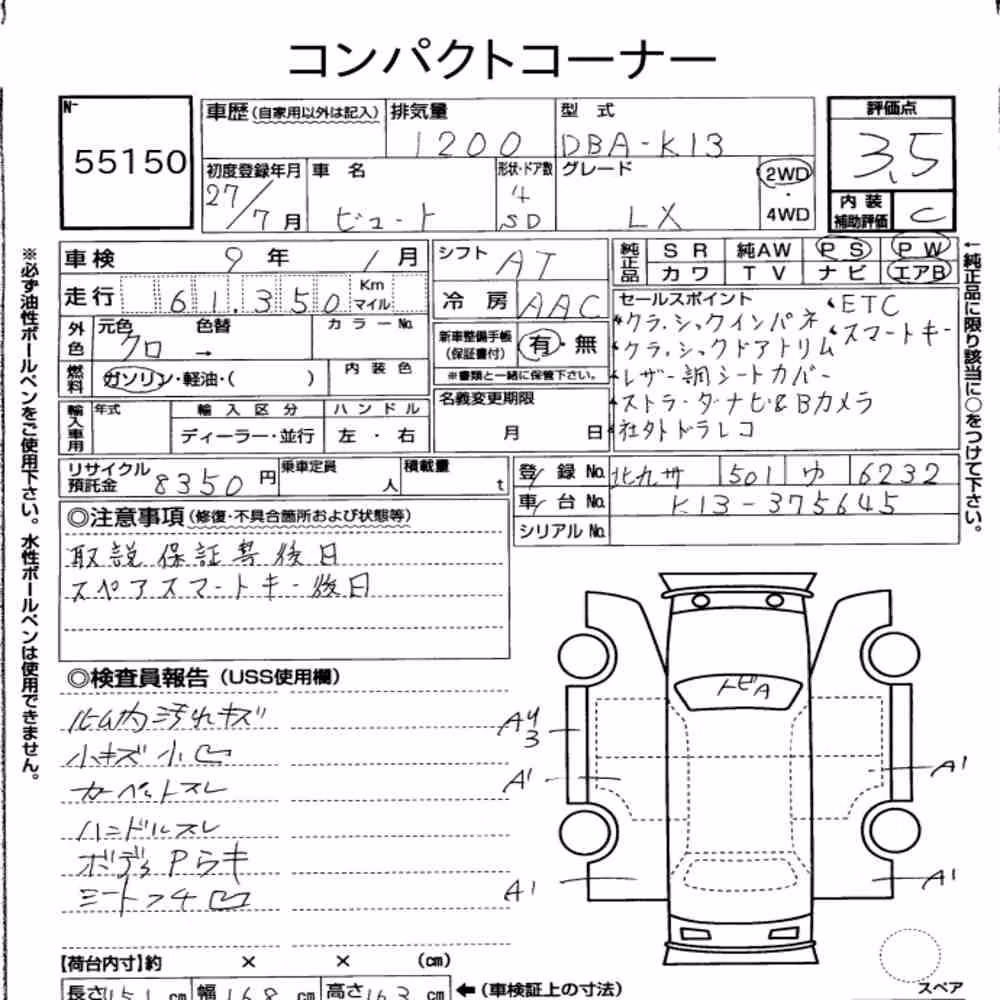 コンパクトコーナー
N-
55150
車歴(自家用以外は記入)
排気量
1200
型 式
DBA-K13
評価点
3.5
初度登録年月
27/7月
車 名
ビュート
形状・ドア数
4
SD
グレード
LX
2WD
・
4WD
内 装
補助評価
C
車検 9年 1月
走行 61.350 Km
マイル
外色
元色 クロ
色替 →
カラーNo.
燃料
ガソリン・軽油・( )
内 装 色
輸入車用
年式
輸 入 区 分
ディーラー・並行
ハ ン ド ル
左 ・ 右
シフト AT
冷 房 AAC
新車整備手帳
(保証書付)
有・無
※書類と一緒に保管下さい。
名義変更期限
月 日
純正品
S R 純AW P S P W
カ ワ T V ナ ビ エアB
セールスポイント
クラ.シックインパネ
クラ.シックドアトリム
レザー調シートカバー
ストラ-ダナビ&Bカメラ
社外ドラレコ
ETC
スマートキー
リサイクル
預託金
8350 円
乗車定員
人
積載量
t
登 録 No. 北九州 501 ゆ 6232
車 台 No. K13-375645
シリアル No.
◎注意事項(修復・不具合箇所および状態等)
取説保証書後日
スペアスマートキー後日
◎検査員報告(USS使用欄)
内汚れキズ
小キズ小凹
カーペットスレ
ハンドルスレ
トビA
A4
3
A1
A1
A1
A1
スペア
【荷台内寸】約 × × (cm)
長さ 151 cm
幅 168 cm
高さ 163 cm
←(車検証上の寸法)
※必ず油性ボールペンをご使用下さい。水性ボールペンは使用できません。
←純正品に限り該当に○をつけて下さい。